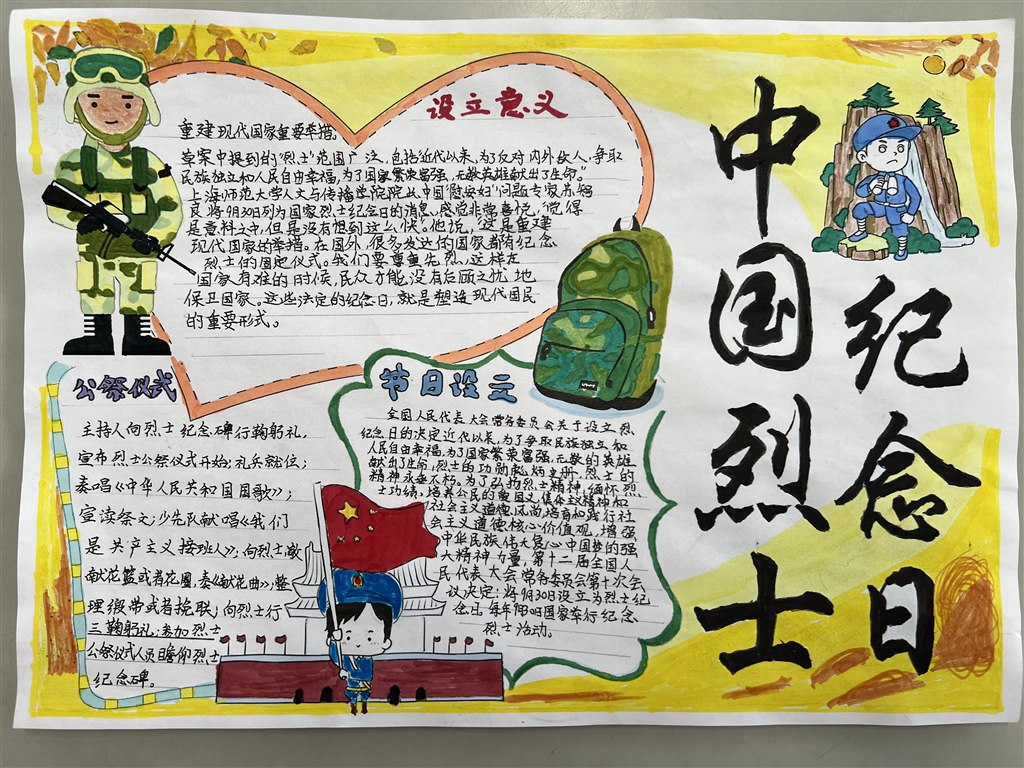 中国烈士
纪念日
设立意义
重建现代国家重要举措。
草案中提到的"烈士"范围广泛,包括近代以来,为了反对内外敌人,争取
民族独立和人民自由幸福,为了国家繁荣富强,无数英雄献出了生命。"
上海师范大学人文与传播学院院长、中国"慰安妇"问题专家苏智
良将9月30列为国家烈士纪念日的消息,感觉非常喜悦,"觉得
是意料之中,但是没有想到这么快。"他说,"这是重建
现代国家的举措。在国外,很多发达的国家都有纪念
烈士的固定仪式。我们要尊重先烈,这样在
国家有难的时候,民众才能没有后顾之忧地
保卫国家。这些决定的纪念日,就是塑造现代国民
的重要形式。
公祭仪式
主持人向烈士纪念碑行鞠躬礼,
宣布烈士公祭仪式开始;礼兵就位;
奏唱《中华人民共和国国歌》;
宣读祭文;少先队献唱《我们
是共产主义接班人》;向烈士敬
献花篮或者花圈,奏《献花曲》;整
理缎带或者挽联;向烈士行
三鞠躬礼;参加烈士
公祭仪式人员瞻仰烈士
纪念碑。
节日设立
全国人民代表大会常务委员会关于设立烈
纪念日的决定近代以来,为了争取民族独立和
人民自由幸福,为了国家繁荣富强,无数的英雄
献出了生命,烈士的功勋彪炳史册,烈士的
精神永垂不朽。为了弘扬烈士精神,缅怀烈
士功绩,培养公民的爱国主义、集体主义精神和
社会主义道德风尚,培育和践行社
会主义道德核心价值观,增强
中华民族伟大复心中国梦的强
大精神力量,第十二届全国人
民代表大会常务委员会第十次会
议决定:将9月30日设立为烈士纪
念日,每年9月30日国家举行纪念
烈士活动。